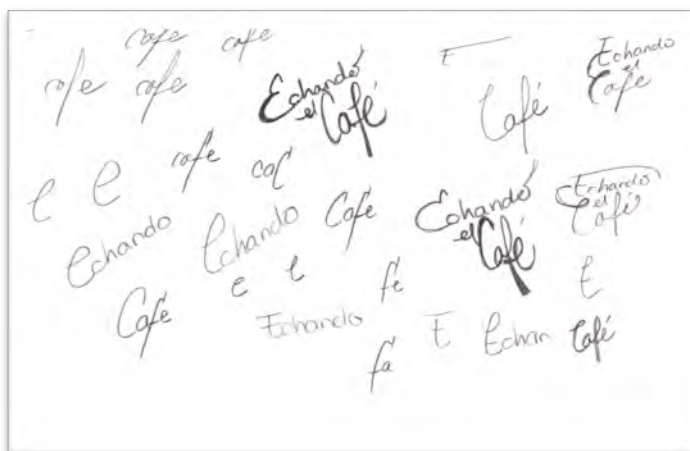 cafe cafe
cafe cafe
Echando
el Café
E
Café
Echando
el
Café
e e cafe caf
Echando Echando Café
Echando
el Café
Echando
el
Café
Café e e fe E
Echando E Echan Café
fa